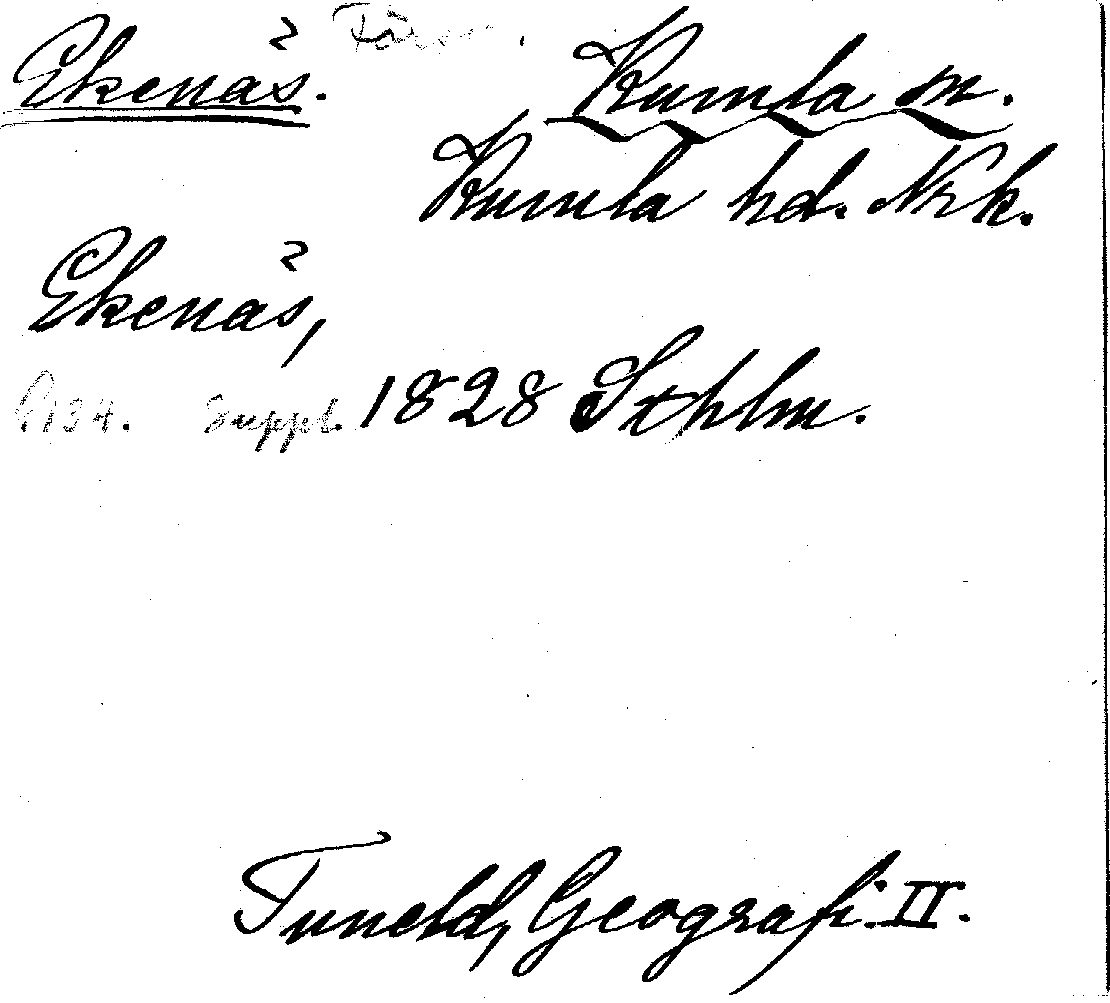 Ekenäs. Kumla sn.
Kumla hd. Nrk.
Ekenäs,
s. 134. Suppl. 1828 Sthlm.
Tuneld, Geografi. II.